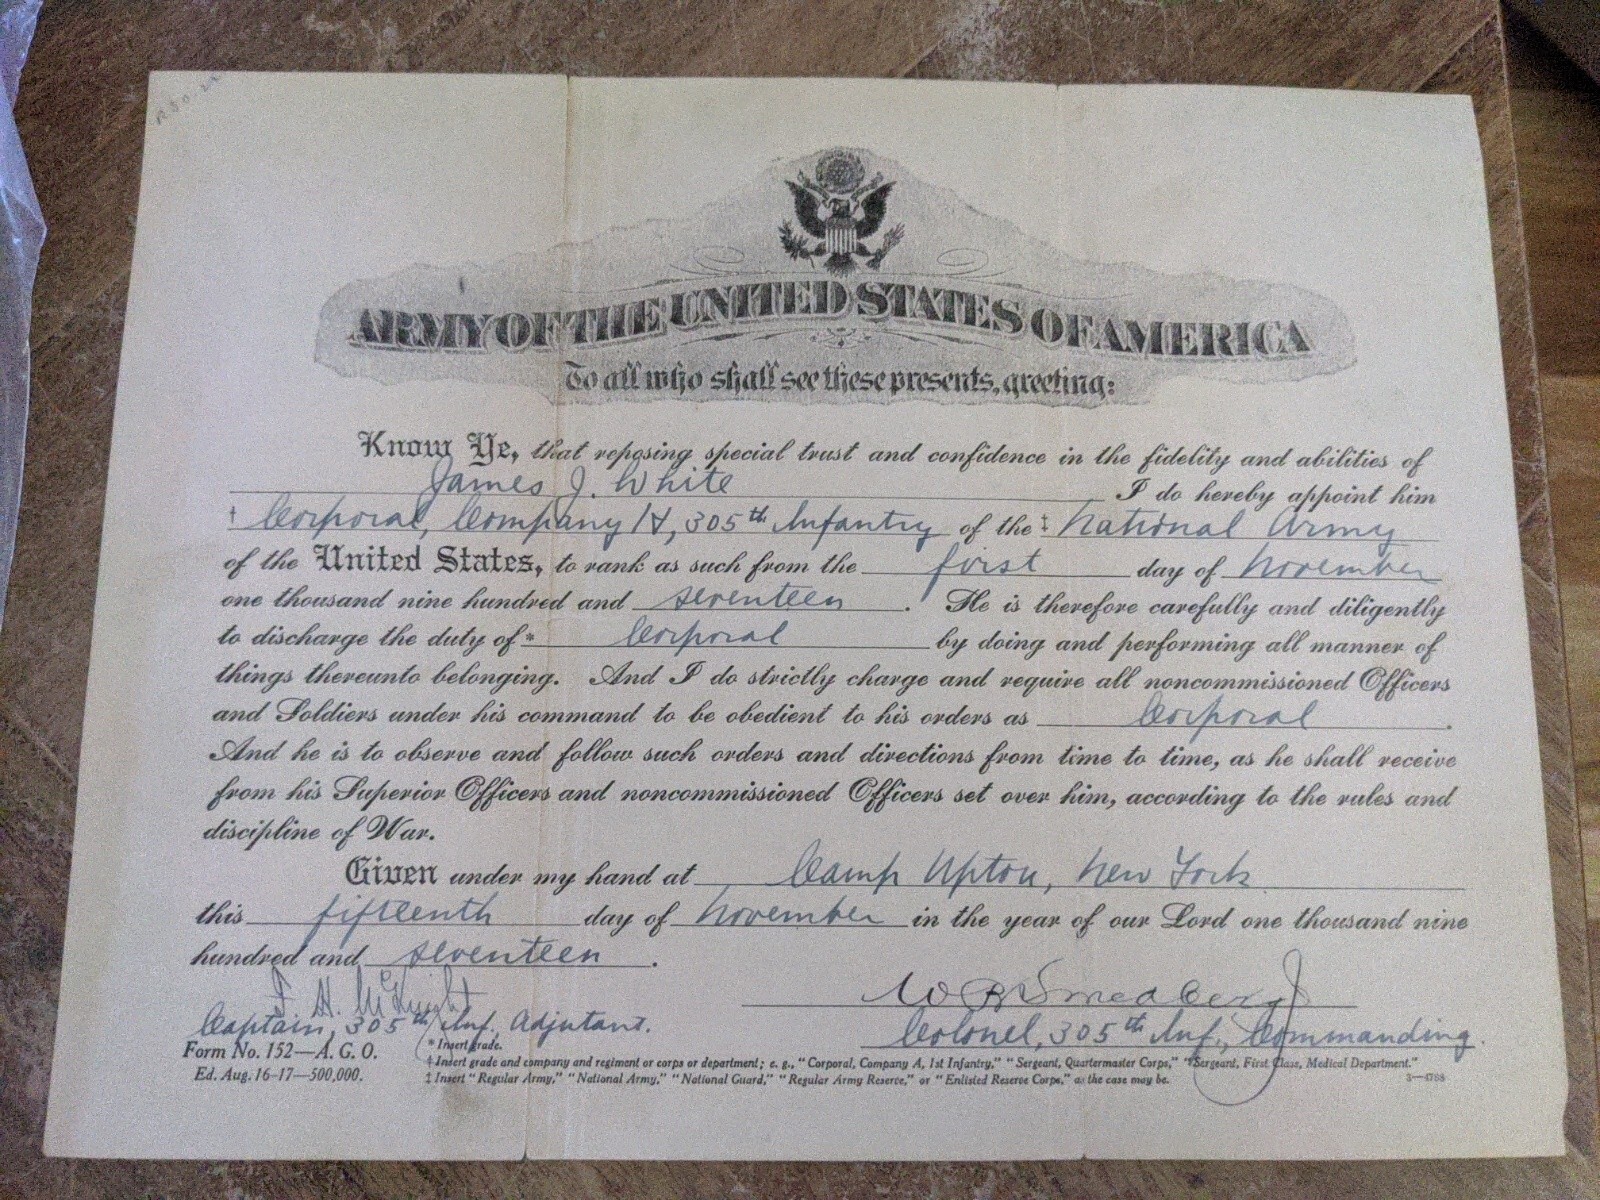 ARMY OF THE UNITED STATES OF AMERICA
To all who shall see these presents, greeting:
Know Ye, that reposing special trust and confidence in the fidelity and abilities of
James J. White I do hereby appoint him
† Corporal, Company H, 305th Infantry of the ‡ National Army
of the United States, to rank as such from the first day of November
one thousand nine hundred and seventeen. He is therefore carefully and diligently
to discharge the duty of * Corporal by doing and performing all manner of
things thereunto belonging. And I do strictly charge and require all noncommissioned Officers
and Soldiers under his command to be obedient to his orders as Corporal.
And he is to observe and follow such orders and directions from time to time, as he shall receive
from his Superior Officers and noncommissioned Officers set over him, according to the rules and
discipline of War.
Given under my hand at Camp Upton, New York
this fifteenth day of November in the year of our Lord one thousand nine
hundred and seventeen.
W R Smedberg J
Captain, 305th Inf., Adjutant.
Colonel, 305th Inf., Commanding.
Form No. 152—A. G. O.
Ed. Aug. 16-17—500,000.
* Insert grade.
† Insert grade and company and regiment or corps or department; e. g., "Corporal, Company A, 1st Infantry," "Sergeant, Quartermaster Corps," "Sergeant, First Class, Medical Department."
‡ Insert "Regular Army," "National Army," "National Guard," "Regular Army Reserve," or "Enlisted Reserve Corps," as the case may be.